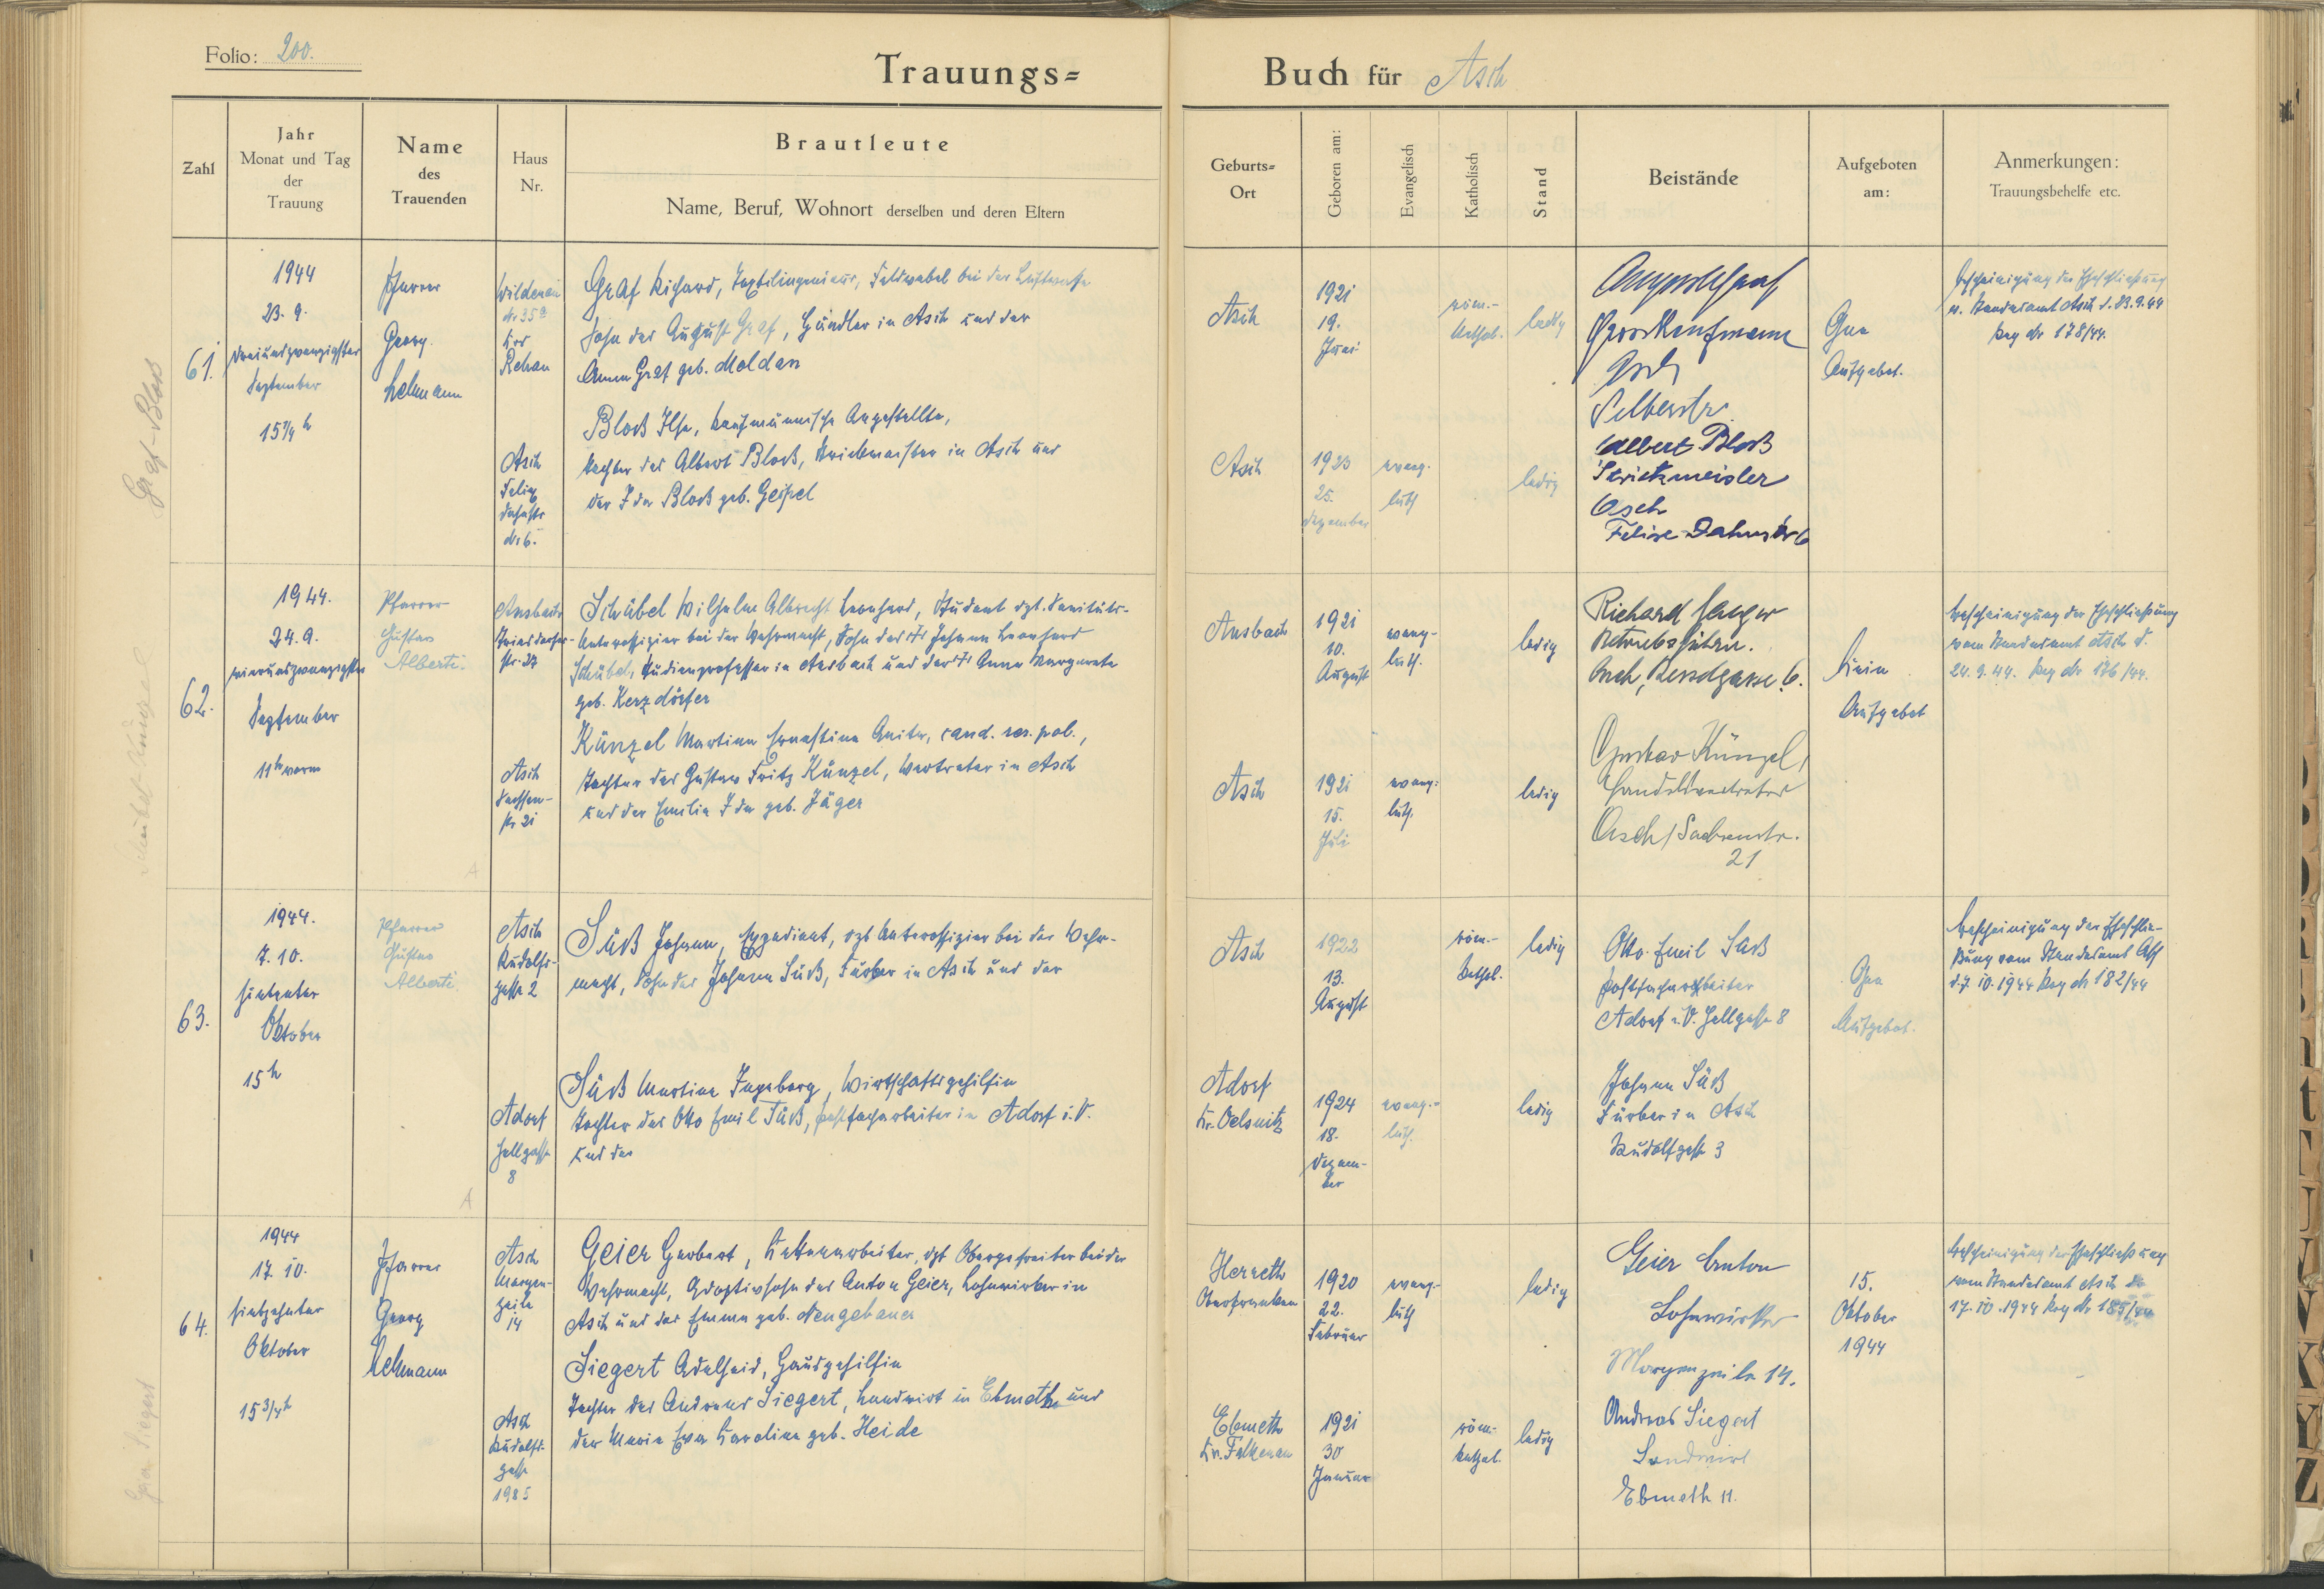 Folio: 200.
Trauungs=
Buch für Asch
Zahl
Jahr
Monat und Tag
der
Trauung
Name
des
Trauenden
Haus
Nr.
Brautleute
Name, Beruf, Wohnort derselben und deren Eltern
Geburts=
Ort
Geboren am:
Evangelisch
Katholisch
Stand
Beistände
Aufgeboten
am:
Anmerkungen:
Trauungsbehelfe etc.
Graf-Bloß
61.
1944
23. 9.
dreiundzwanzigster
September
15 1/4 h
Pfarrer
Georg
Lehmann
Wildenau
Nr 35a
Krs
Rehau
Graf Richard, Textilingenieur, Feldwebel bei der Luftwaffe
Sohn des August Graf, Händler in Asch und der
Anna Graf geb. Moldan
Asch
1921
19.
Juni
röm.-
kathol.
ledig
Grosskaufmann
Asch
Selberstr.
Ohne
Aufgebot.
Bescheinigung der Eheschließung
v. Standesamt Asch d. 23.9.44
Reg Nr 178/44.
Asch
Felix
Dahnstr
Nr 6.
Bloß Ilse, kaufmännische Angestellte,
Tochter des Albert Bloß, Strickmeister in Asch und
der Ida Bloß geb. Geipel
Asch
1923
25.
Dezember
evang.
luth
ledig
Albert Bloß
Strickmeister
Asch
Felix-Dahnstr 6
Schübel-Künzel
62.
1944.
24. 9.
vierundzwanzigster
September
11 h vorm
Pfarrer
Gustav
Alberti.
Ansbach
Triesdorfer-
str. 27
Schübel Wilhelm Albrecht Leonhard, Student dzt. Sanitäts-
Unteroffizier bei der Wehrmacht, Sohn des Johann Leonhard
Schübel, Studienprofessor in Ansbach und der Anna Margarete
geb. Kerzdörfer
Ansbach
1921
10.
August
evang-
luth.
ledig
Richard Jaeger
Betriebsführer.
Asch, 6.
Kein
Aufgebot
Bescheinigung der Eheschließung
vom Standesamt Asch d.
24. 9. 44. Reg Nr 176/44.
Asch
Sachsen-
str 21
Künzel Martina Ernestine Anita, cand. rer. pol.,
Tochter des Gustav Fritz Künzel, Vertreter in Asch
und der Emilie Ida geb. Jäger
Asch
1921
15.
Juli
evang.
luth.
ledig
Gustav Künzel,
Handelsvertreter
Asch / Sachsenstr.
21
A
63.
1944.
7. 10.
siebenter
Oktober
15 h
Pfarrer
Gustav
Alberti.
Asch
Rudolfs-
gasse 2
Süß Johann, Expedient, dzt Unteroffizier bei der Wehr-
macht, Sohn des Johann Süß, Färber in Asch und der
Asch
1922
13.
August
röm.-
kathol.
ledig
Otto Emil Süß
Postfacharbeiter
Adorf i. V. Hellgasse 8
Ohne
Aufgebot.
Bescheinigung der Eheschlie-
ßung vom Standesamt Asch
d. 7. 10. 1944 Reg Nr 182/44
Adorf
Hellgasse
8
Süß Martina Ingeborg, Wirtschaftsgehilfin
Tochter des Otto Emil Süß, Postfacharbeiter in Adorf i. V.
und der
Adorf
Kr. Oelsnitz
1924
18.
Dezem-
ber
evang.-
luth.
ledig
Johann Süß
Färber in Asch
Rudolfgasse 3
A
Geier Siegert
64.
1944
17. 10.
siebzehnter
Oktober
15 3/4 h
Pfarrer
Georg
Lehmann
Asch
Morgen-
zeile
14
Geier Herbert, Kettenarbeiter, dzt Obergefreiter bei der
Wehrmacht, Adoptivsohn des Anton Geier, Lohnwirker in
Asch und der Emma geb. Neugebauer
Herreth
Oberfranken
1920
22.
Februar
evang-
luth
ledig
Geier Anton
Lohnwirker
Morgenzeile 14.
15.
Oktober
1944
Bescheinigung der Eheschließung
vom Standesamt Asch d.
17. 10. 1944 Reg Nr 185/44
Asch
Rudolfs-
gasse
1985
Siegert Adelheid, Hausgehilfin
Tochter des Andreas Siegert, Landwirt in Ebmeth und
der Maria Eva Karolina geb. Heide
Ebmeth
Kr. Falkenau
1921
30
Januar
röm.-
kathol.
ledig
Andreas Siegert
Landwirt
Ebmeth 11.